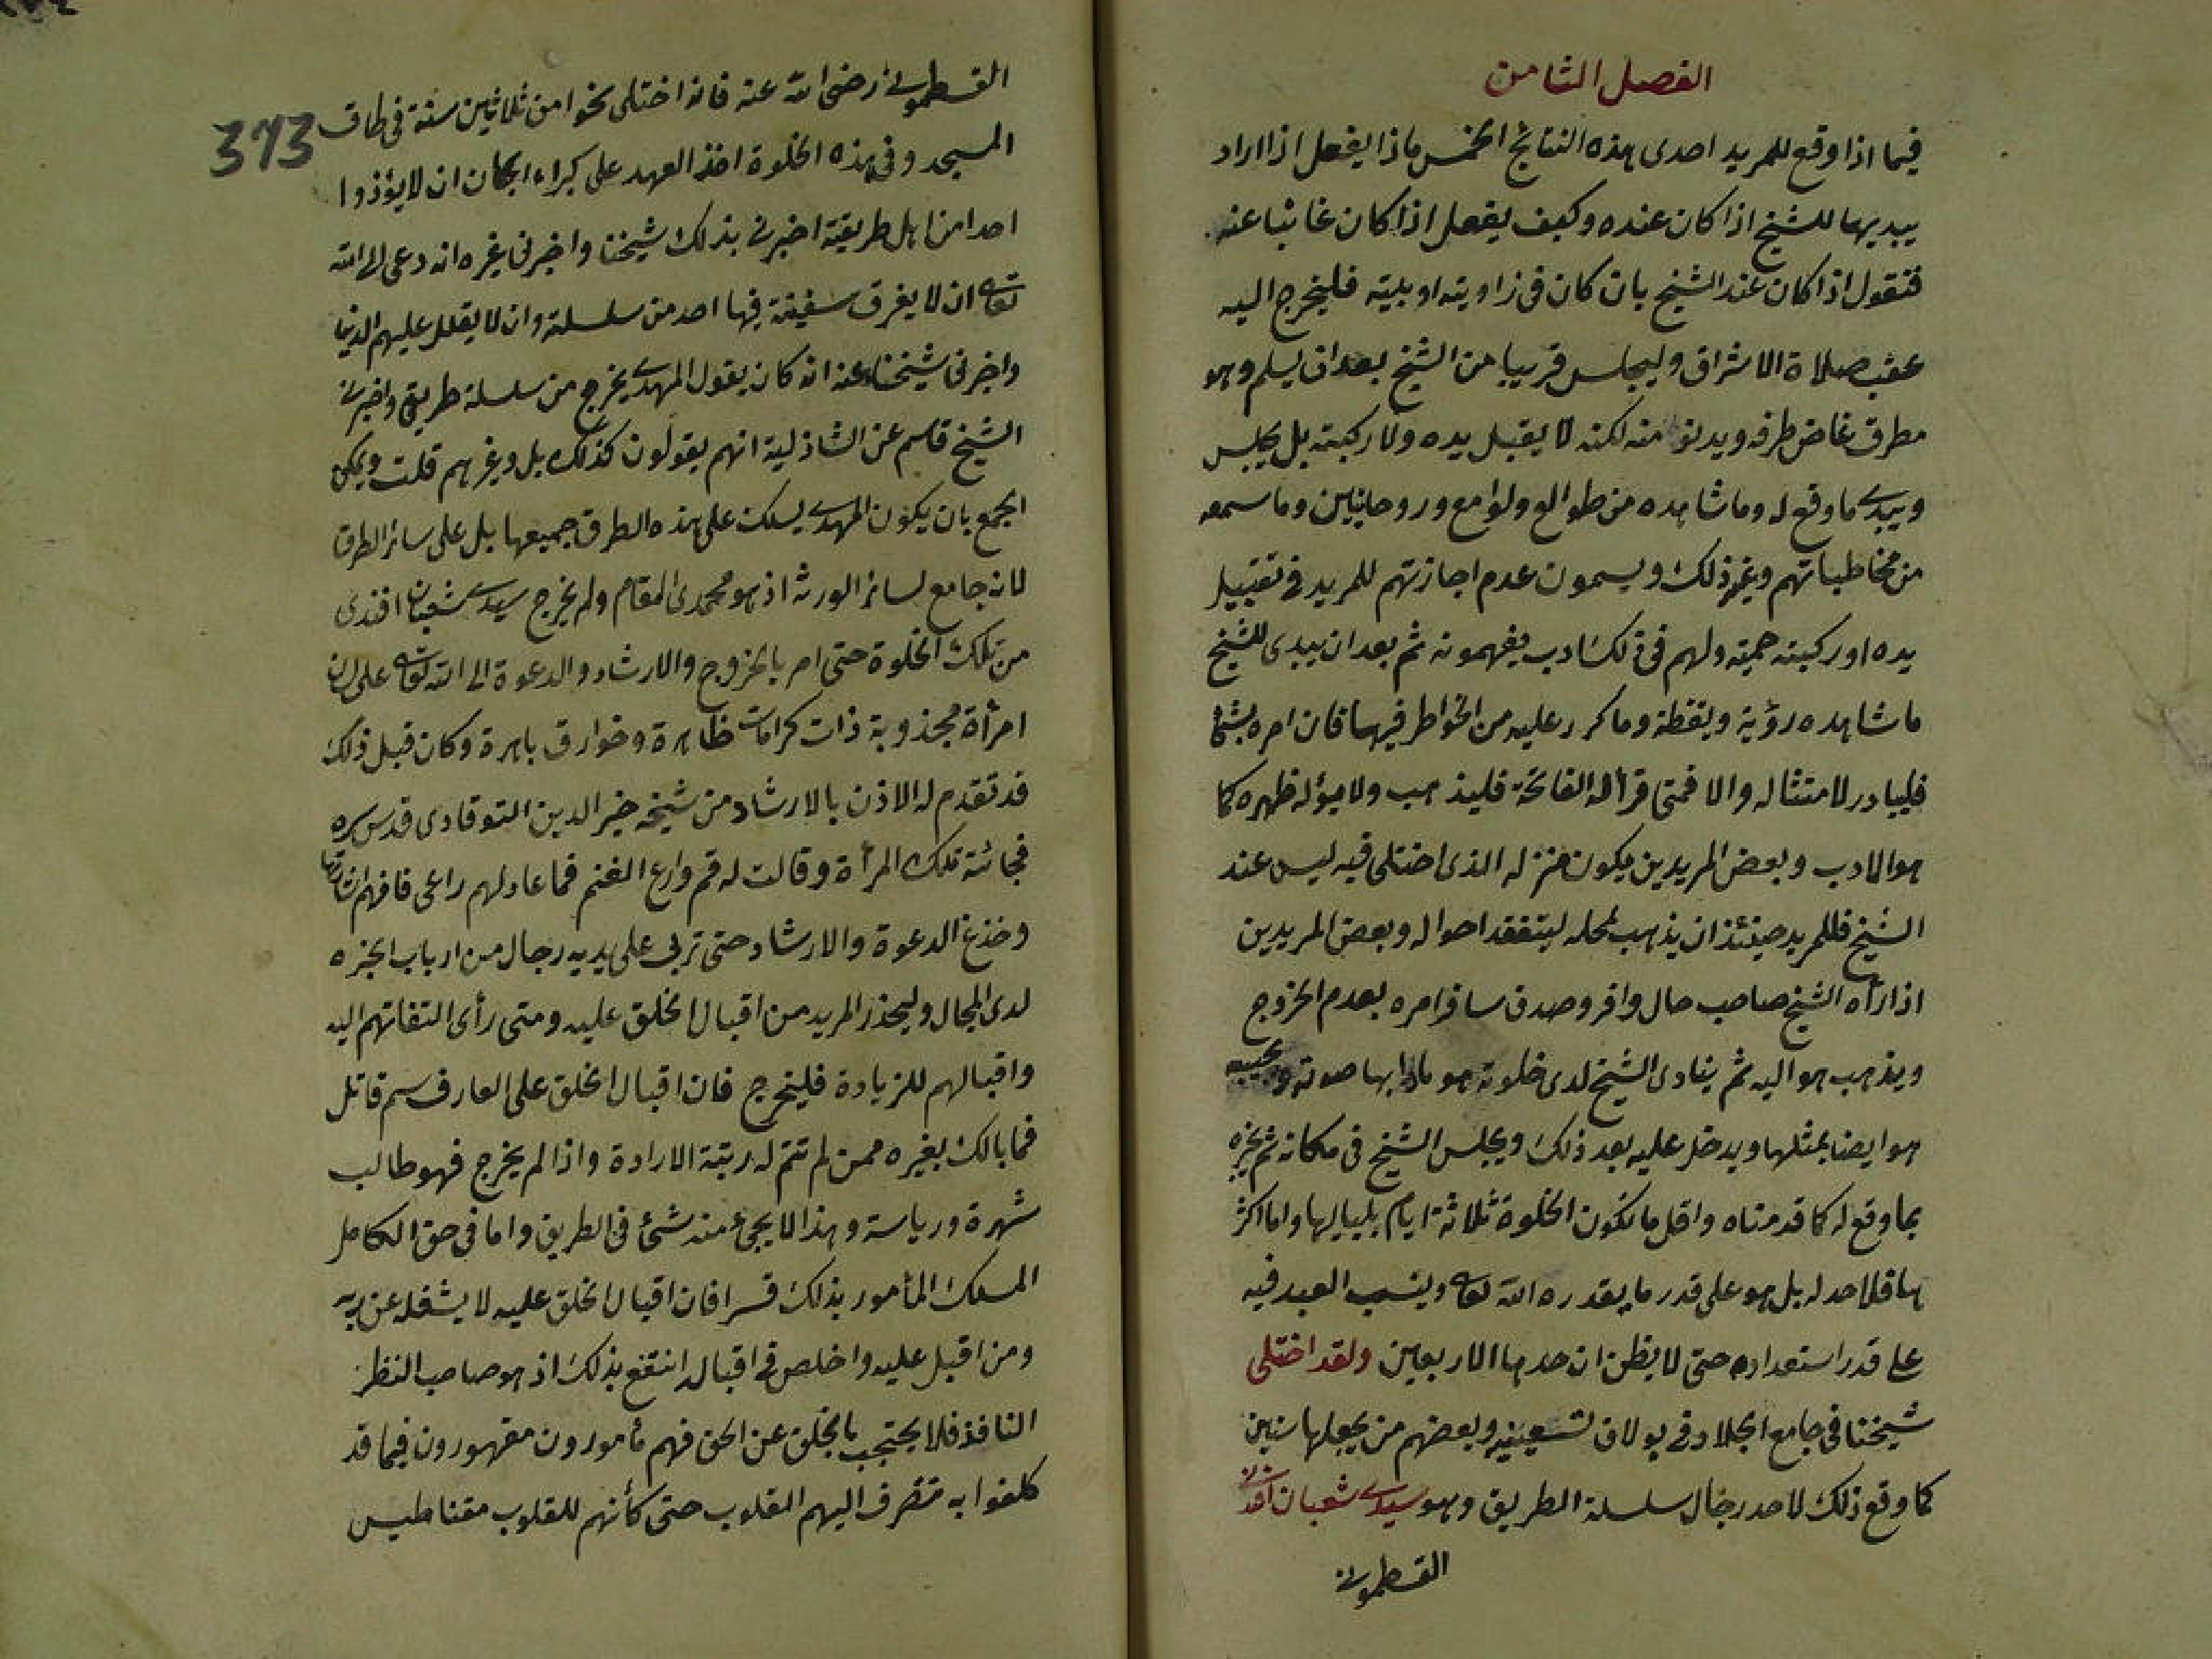 الفصل الثامن
فيما اذا وقع للمريد احدى هذه النتائج الخمس ماذا يفعل اذا اراد
يبديها للشيخ اذا كان عنده وكيف يفعل اذا كان غائبا عنه
فنقول اذا كان عند الشيخ بان كان فى زاويته او بيته فليخرج اليه
عقب صلاة الاشراق وليجلس قريبا من الشيخ بعد ان يسلم وهو
مطرق غاض طرفه ويدنو منه لكنه لا يقبل يده ولا ركبته بل يجلس
ويبدى ما وقع له وما شاهده من طوالع ولوامع وروحانيين وما سمعه
من مخاطباتهم وغير ذلك ويسمون عدم اجازتهم للمريد فى تقبيل
يده او ركبته حمية ولهم فى ذلك ادب يفهمونه ثم بعد ان يبدى للشيخ
ما شاهده رؤية ويقظة وما كرر عليه من الخواطر فيها فان امره بشئ
فليبادر لامتثاله والا فمتى قرأ له الفاتحة فليذهب ولا يوله ظهره كما
هو الادب وبعض المريدين يكون منزله الذى اختلى فيه ليس عند
الشيخ فللمريد حينئذ ان يذهب لمحله ليتفقد احواله وبعض المريدين
اذا رآه الشيخ صاحب حال وافر وصدق سافر امره بعدم الخروج
ويذهب هو اليه ثم ينادى الشيخ لدى خلوته هو مادا بها صوته ويجيبه
هو ايضا بمثلها ويدخل عليه بعد ذلك ويجلس الشيخ فى مكانه ثم يخبره
بما وقع له كما قدمناه واقل ما تكون الخلوة ثلاثة ايام بلياليها واما اكثر
ها فلا حد له بل هو على قدر ما يقدره الله تعالى وينسب العبد فيه
على قدر استعداده حتى لا يظن ان حدها الاربعين ولقد اختلى
شيخنا فى جامع الجلاد فى بولاق تسعينيه وبعضهم من يجعلها سنين
كما وقع ذلك لاحد رجال سلسلة الطريق وهو سيدى شعبان افندى
القسطمونى
373
القسطمونى رضى الله عنه فانه اختلى نحوا من ثلاثين سنة فى طاق
المسجد وفى هذه الخلوة اخذ العهد على كبراء الجان ان لا يؤذوا
احدا من اهل طريقته اخبرنى بذلك شيخنا واخبرنى غيره انه دعى الى الله
تعالى ان لا يغرق سفينة فيها احد من سلسلته وان لا يقلل عليهم الدنيا
واخبرنى شيخنا عنه انه كان يقول المهدى يخرج من سلسلة طريقى واخبرنى
الشيخ قاسم عن الشاذلية انهم يقولون كذلك بل وغيرهم قلت ويمكن
الجمع بان يكون المهدى يسلك على هذه الطرق جميعها بل على سائر الطرق
لانه جامع لسائر الورثة اذ هو محمدى المقام ولم يخرج سيدى شعبان افندى
من تلك الخلوة حتى امر بالخروج والارشاد والدعوة الى الله تعالى على لسان
امرأة مجذوبة ذات كرامات ظاهرة وخوارق باهرة وكان قبل ذلك
قد تقدم له الاذن بالارشاد من شيخه خير الدين التوقادى قدس سره
فجائته تلك المرأة وقالت له قم وارع الغنم فما عاد لهم راعى فافهم اشارتها
وخذ فى الدعوة والارشاد حتى تربى على يديه رجال من ارباب الخبره
لدى المجال وليحذر المريد من اقبال الخلق عليه ومتى رأى التفاتهم اليه
واقبالهم للزيادة فليخرج فان اقبال الخلق على العارف سم قاتل
فما بالك بغيره ممن لم تتم له رتبة الارادة واذا لم يخرج فهو طالب
شهرة ورياسة وهذا لا يجئ منه شئ فى الطريق واما فى حق الكامل
المسلك المأمور بذلك قسرا فان اقبال الخلق عليه لا يشغله عن ربه
ومن اقبل عليه واخلص فى اقباله انتفع بذلك اذ هو صاحب النظر
النافذ فلا يحتجب بالخلق عن الحق فهم مأمورون مقهورون فيما قد
كلفوا به تتصرف اليهم القلوب حتى كأنهم للقلوب مقناطيس